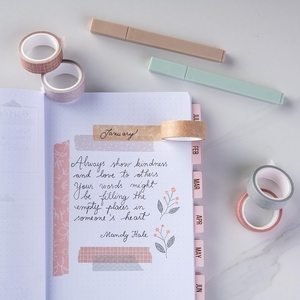 January
Always show kindness
and love to others
Your words might
be filling the
empty places in
someone's heart
Mandy Hale
FEB
MAR
APR
MAY
JUN